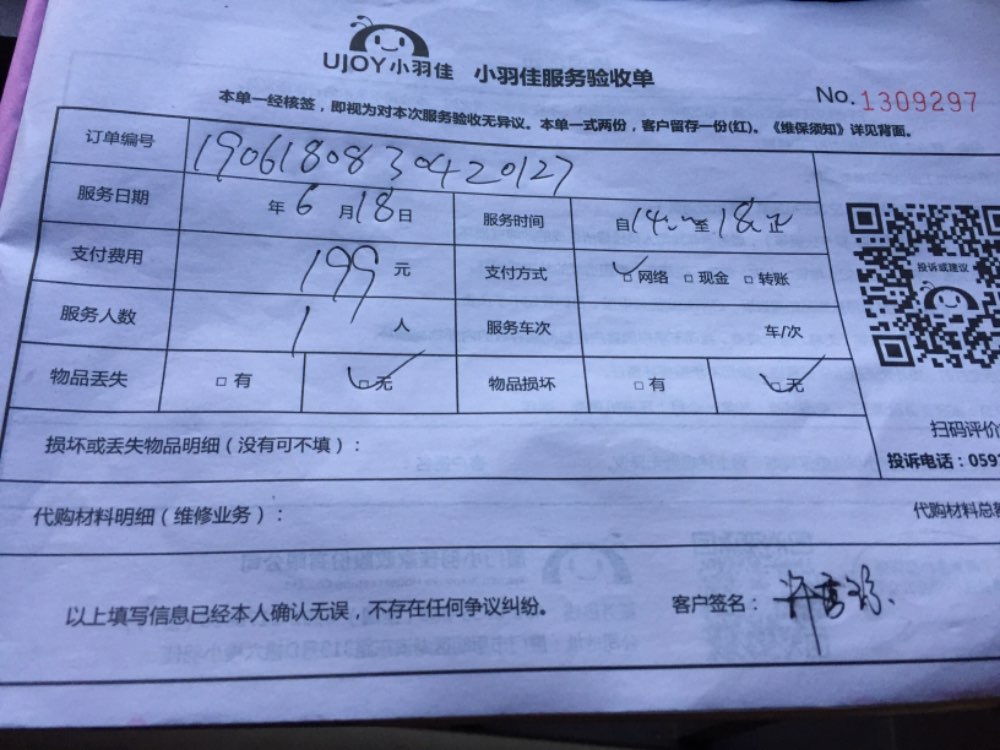 UJOY小羽佳 小羽佳服务验收单
No. 1309297
本单一经核签，即视为对本次服务验收无异议。本单一式两份，客户留存一份(红)。《维保须知》详见背面。
订单编号 1906180830420127
服务日期 年6月18日 服务时间 自14:00至18:正
支付费用 199元 支付方式 网络 现金 转账
投诉或建议
服务人数 1人 服务车次 车/次
物品丢失 有 无 物品损坏 有 无
损坏或丢失物品明细（没有可不填）：
扫码评价
投诉电话：059
代购材料明细（维修业务）：
代购材料总
以上填写信息已经本人确认无误，不存在任何争议纠纷。 客户签名：